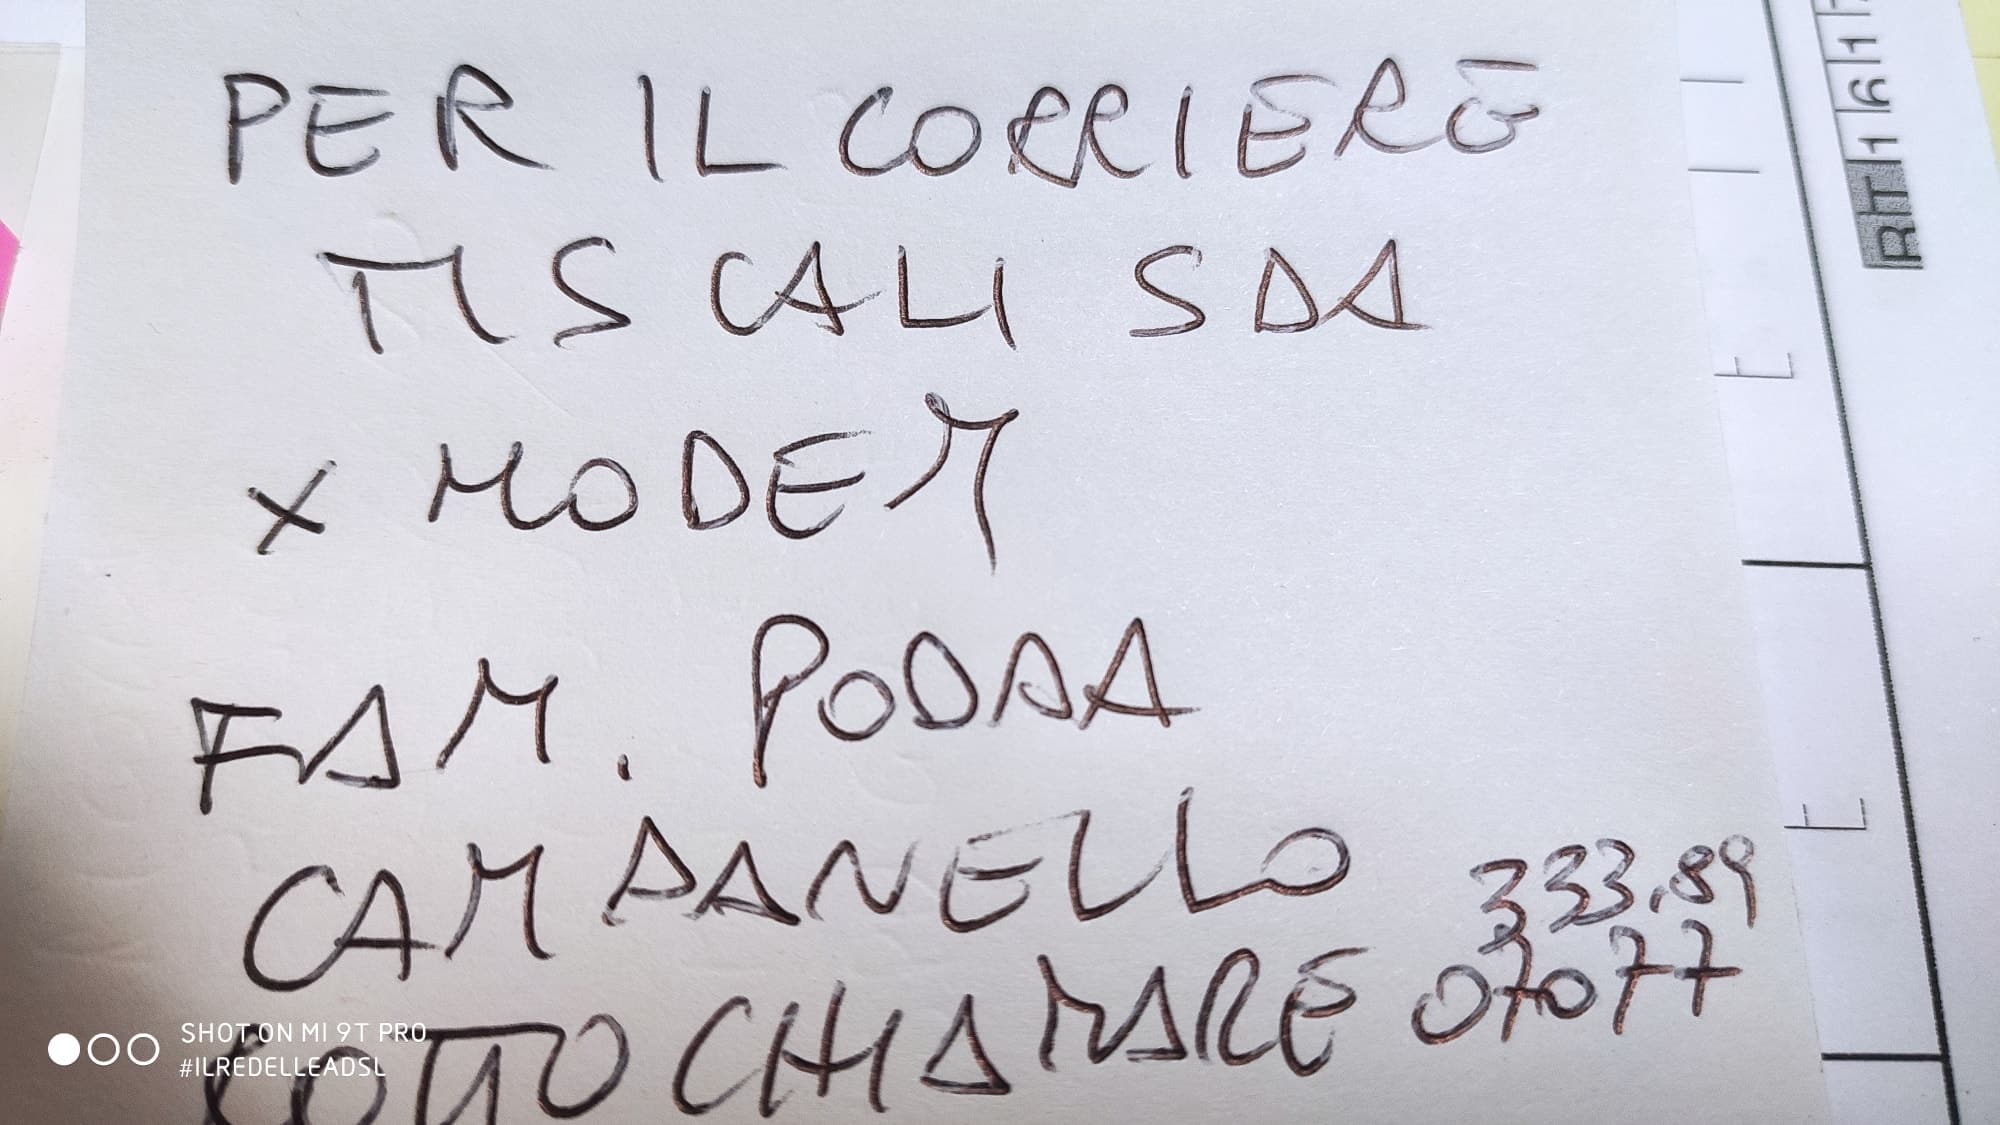 PER IL CORRIERE
TISCALI SDA
X MODEM
FAM. PODDA
CAMPANELLO
333.89
ROTTO CHIAMARE 07077
SHOT ON MI 9T PRO
#ILREDELLEADSL
BT 1 6 1
E
E